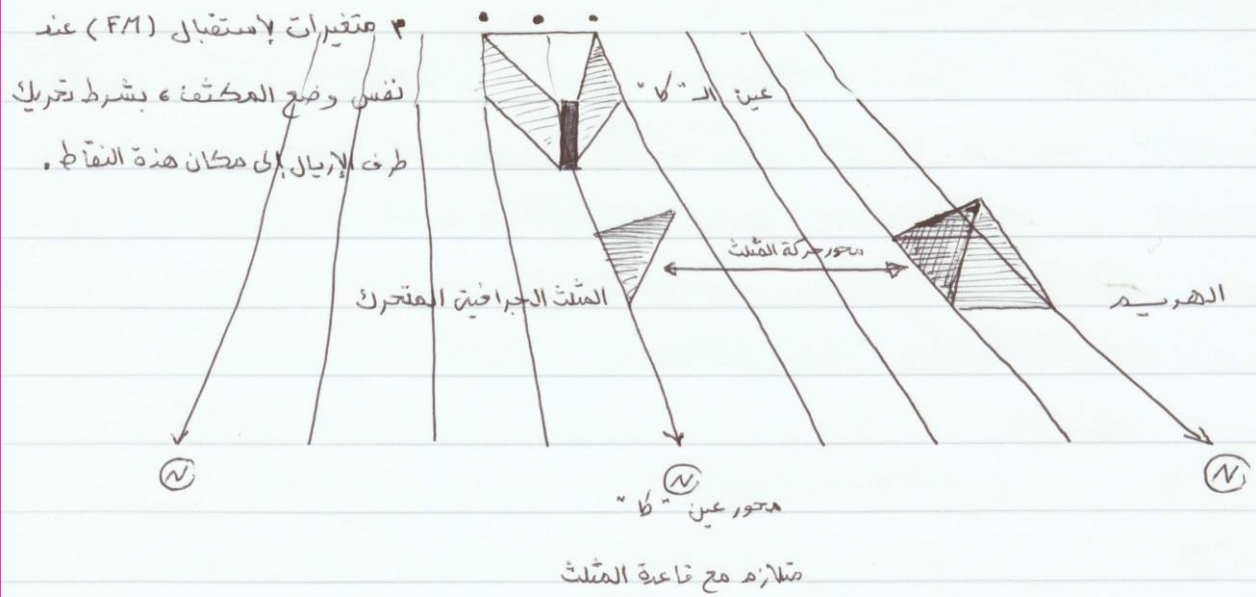 ٣ متغيرات لإستقبال (FM) عند
نفس وضع المكثف ، بشرط تحريك
طرف الإريال إلى مكان هذة النقاط .
عين الـ "كا"
محور حركة المثلث
المثلث الجرافيتى المتحرك
الهريم
N
N
N
محور عين "كا"
متلازم مع قاعدة المثلث